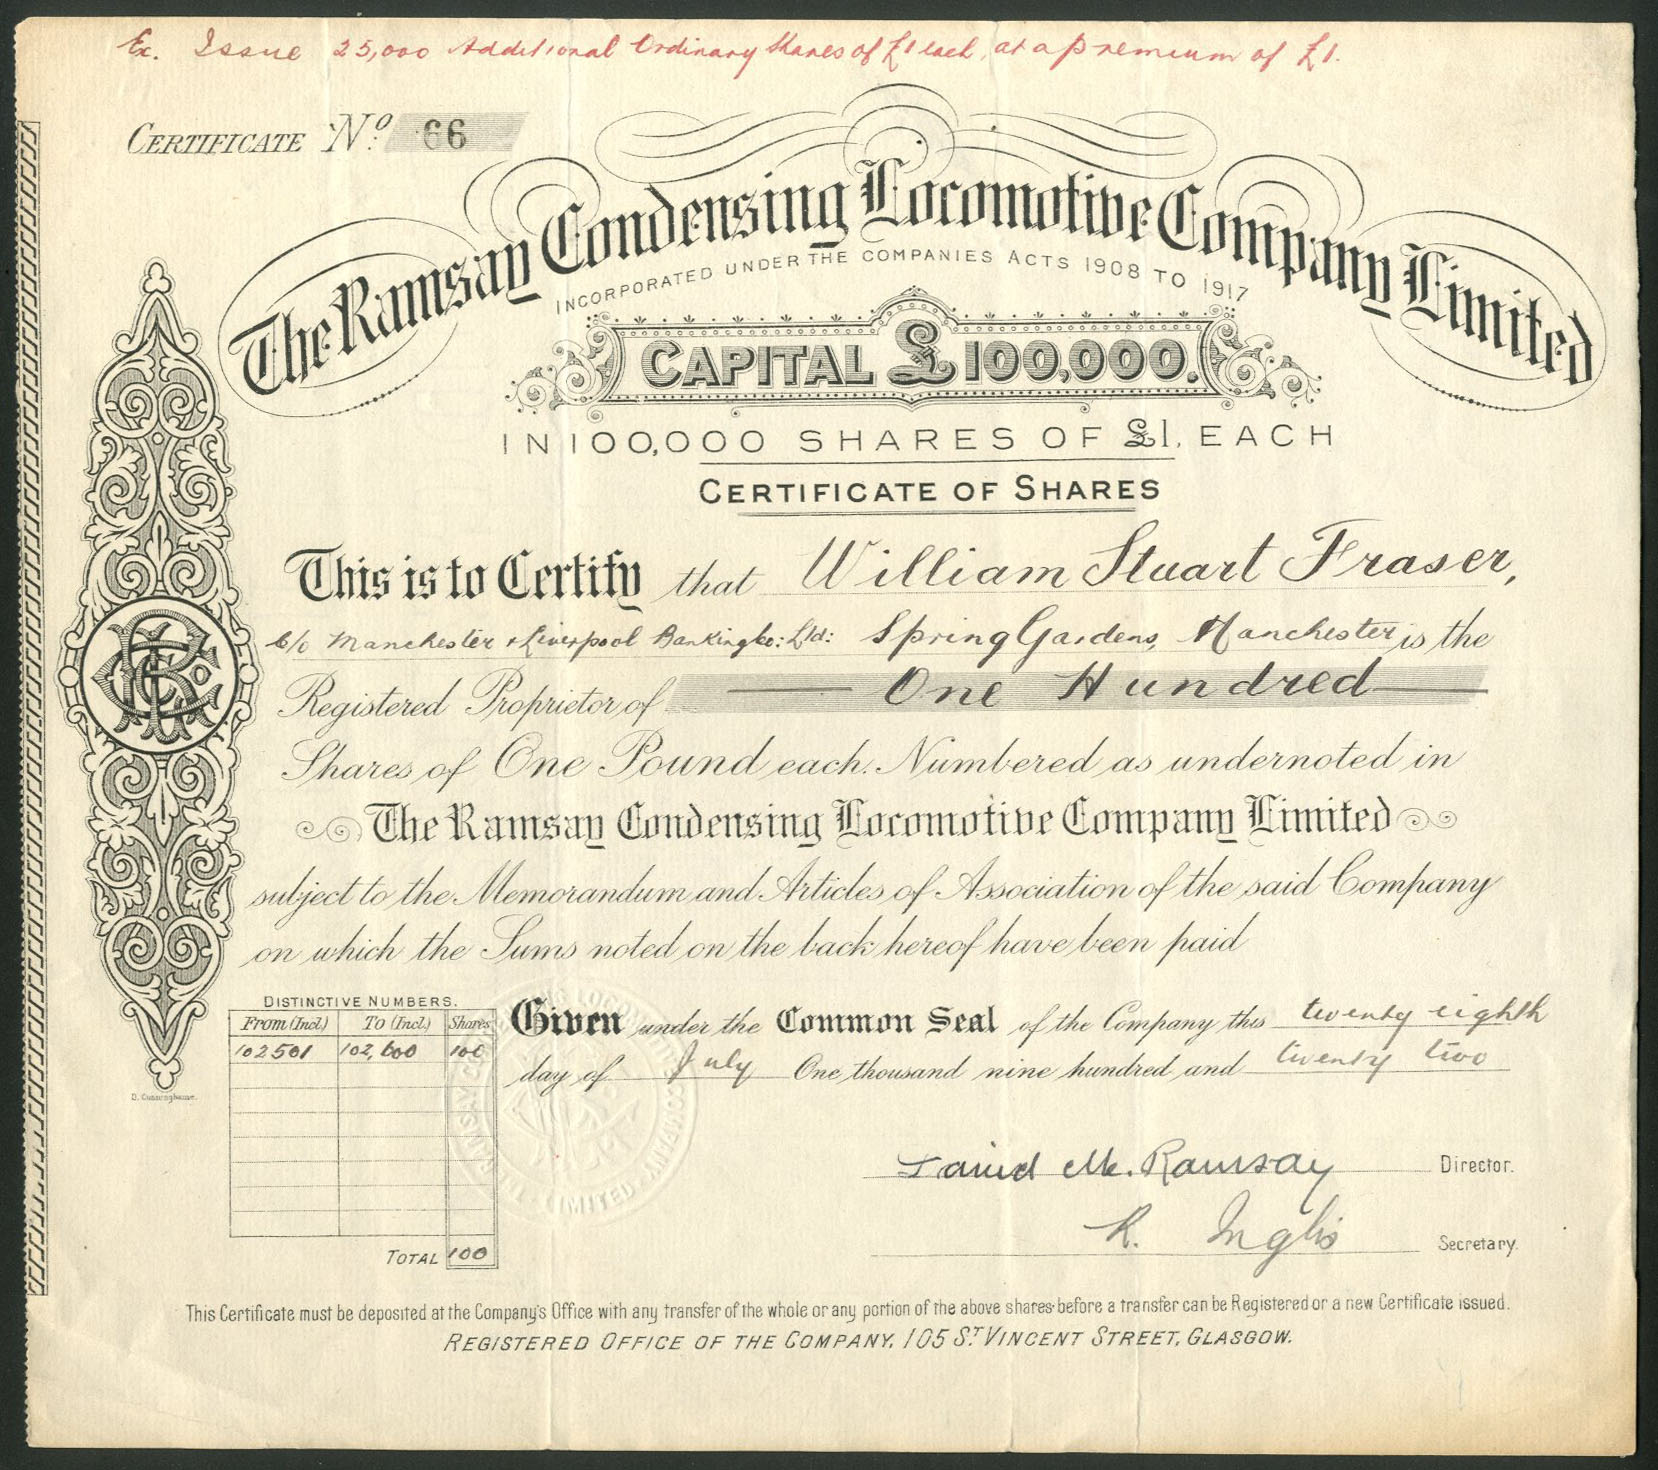 Ex. Issue 25,000 Additional Ordinary Shares of £1 each, at a premium of £1.
CERTIFICATE No. 66
The Ramsay Condensing Locomotive Company Limited
INCORPORATED UNDER THE COMPANIES ACTS 1908 TO 1917
CAPITAL £100,000.
IN 100,000 SHARES OF £1. EACH
CERTIFICATE OF SHARES
This is to Certify that William Stuart Fraser,
C/o Manchester & Liverpool Banking Co: Ltd: Spring Gardens, Manchester is the
Registered Proprietor of One Hundred
Shares of One Pound each. Numbered as undernoted in
The Ramsay Condensing Locomotive Company Limited
subject to the Memorandum and Articles of Association of the said Company
on which the Sums noted on the back hereof have been paid
DISTINCTIVE NUMBERS.
From (Incl.) To (Incl.) Shares
102501 102,600 100
TOTAL 100
Given under the Common Seal of the Company this twenty eighth
day of July One thousand nine hundred and twenty two
D. Cunninghame.
David M. Ramsay Director.
R. Inglis Secretary.
This Certificate must be deposited at the Company's Office with any transfer of the whole or any portion of the above shares before a transfer can be Registered or a new Certificate issued.
REGISTERED OFFICE OF THE COMPANY, 105 ST VINCENT STREET, GLASGOW.